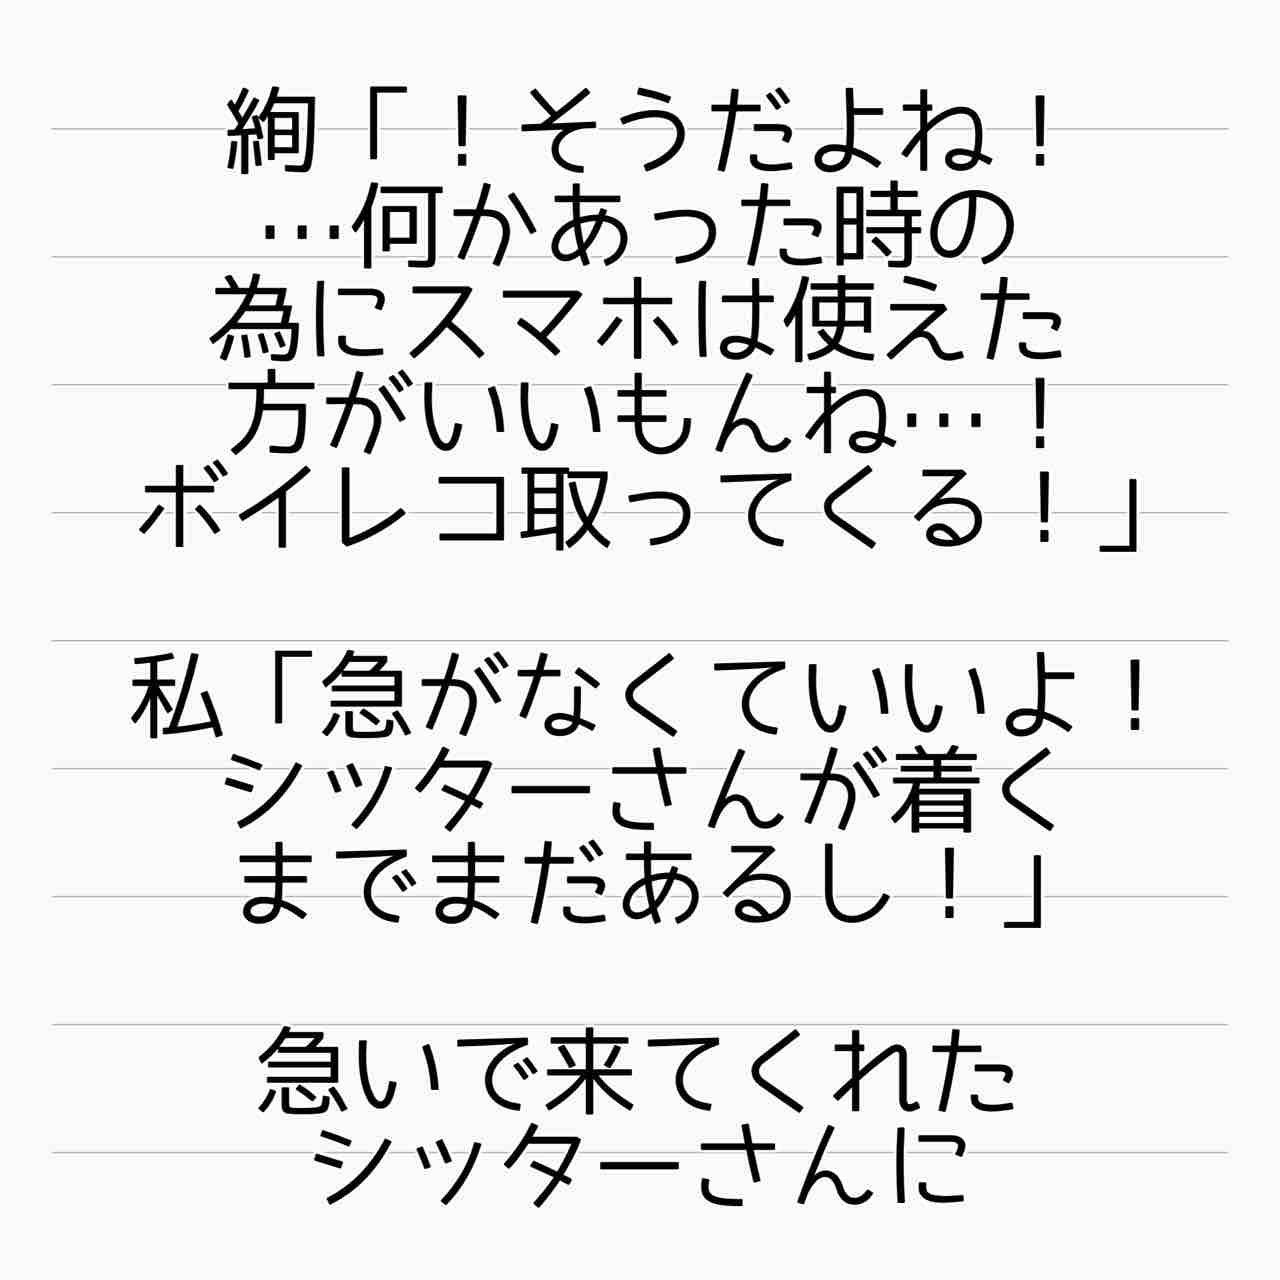 絢「！そうだよね！
…何かあった時の
為にスマホは使えた
方がいいもんね…！
ボイレコ取ってくる！」
私「急がなくていいよ！
シッターさんが着く
までまだあるし！」
急いで来てくれた
シッターさんに